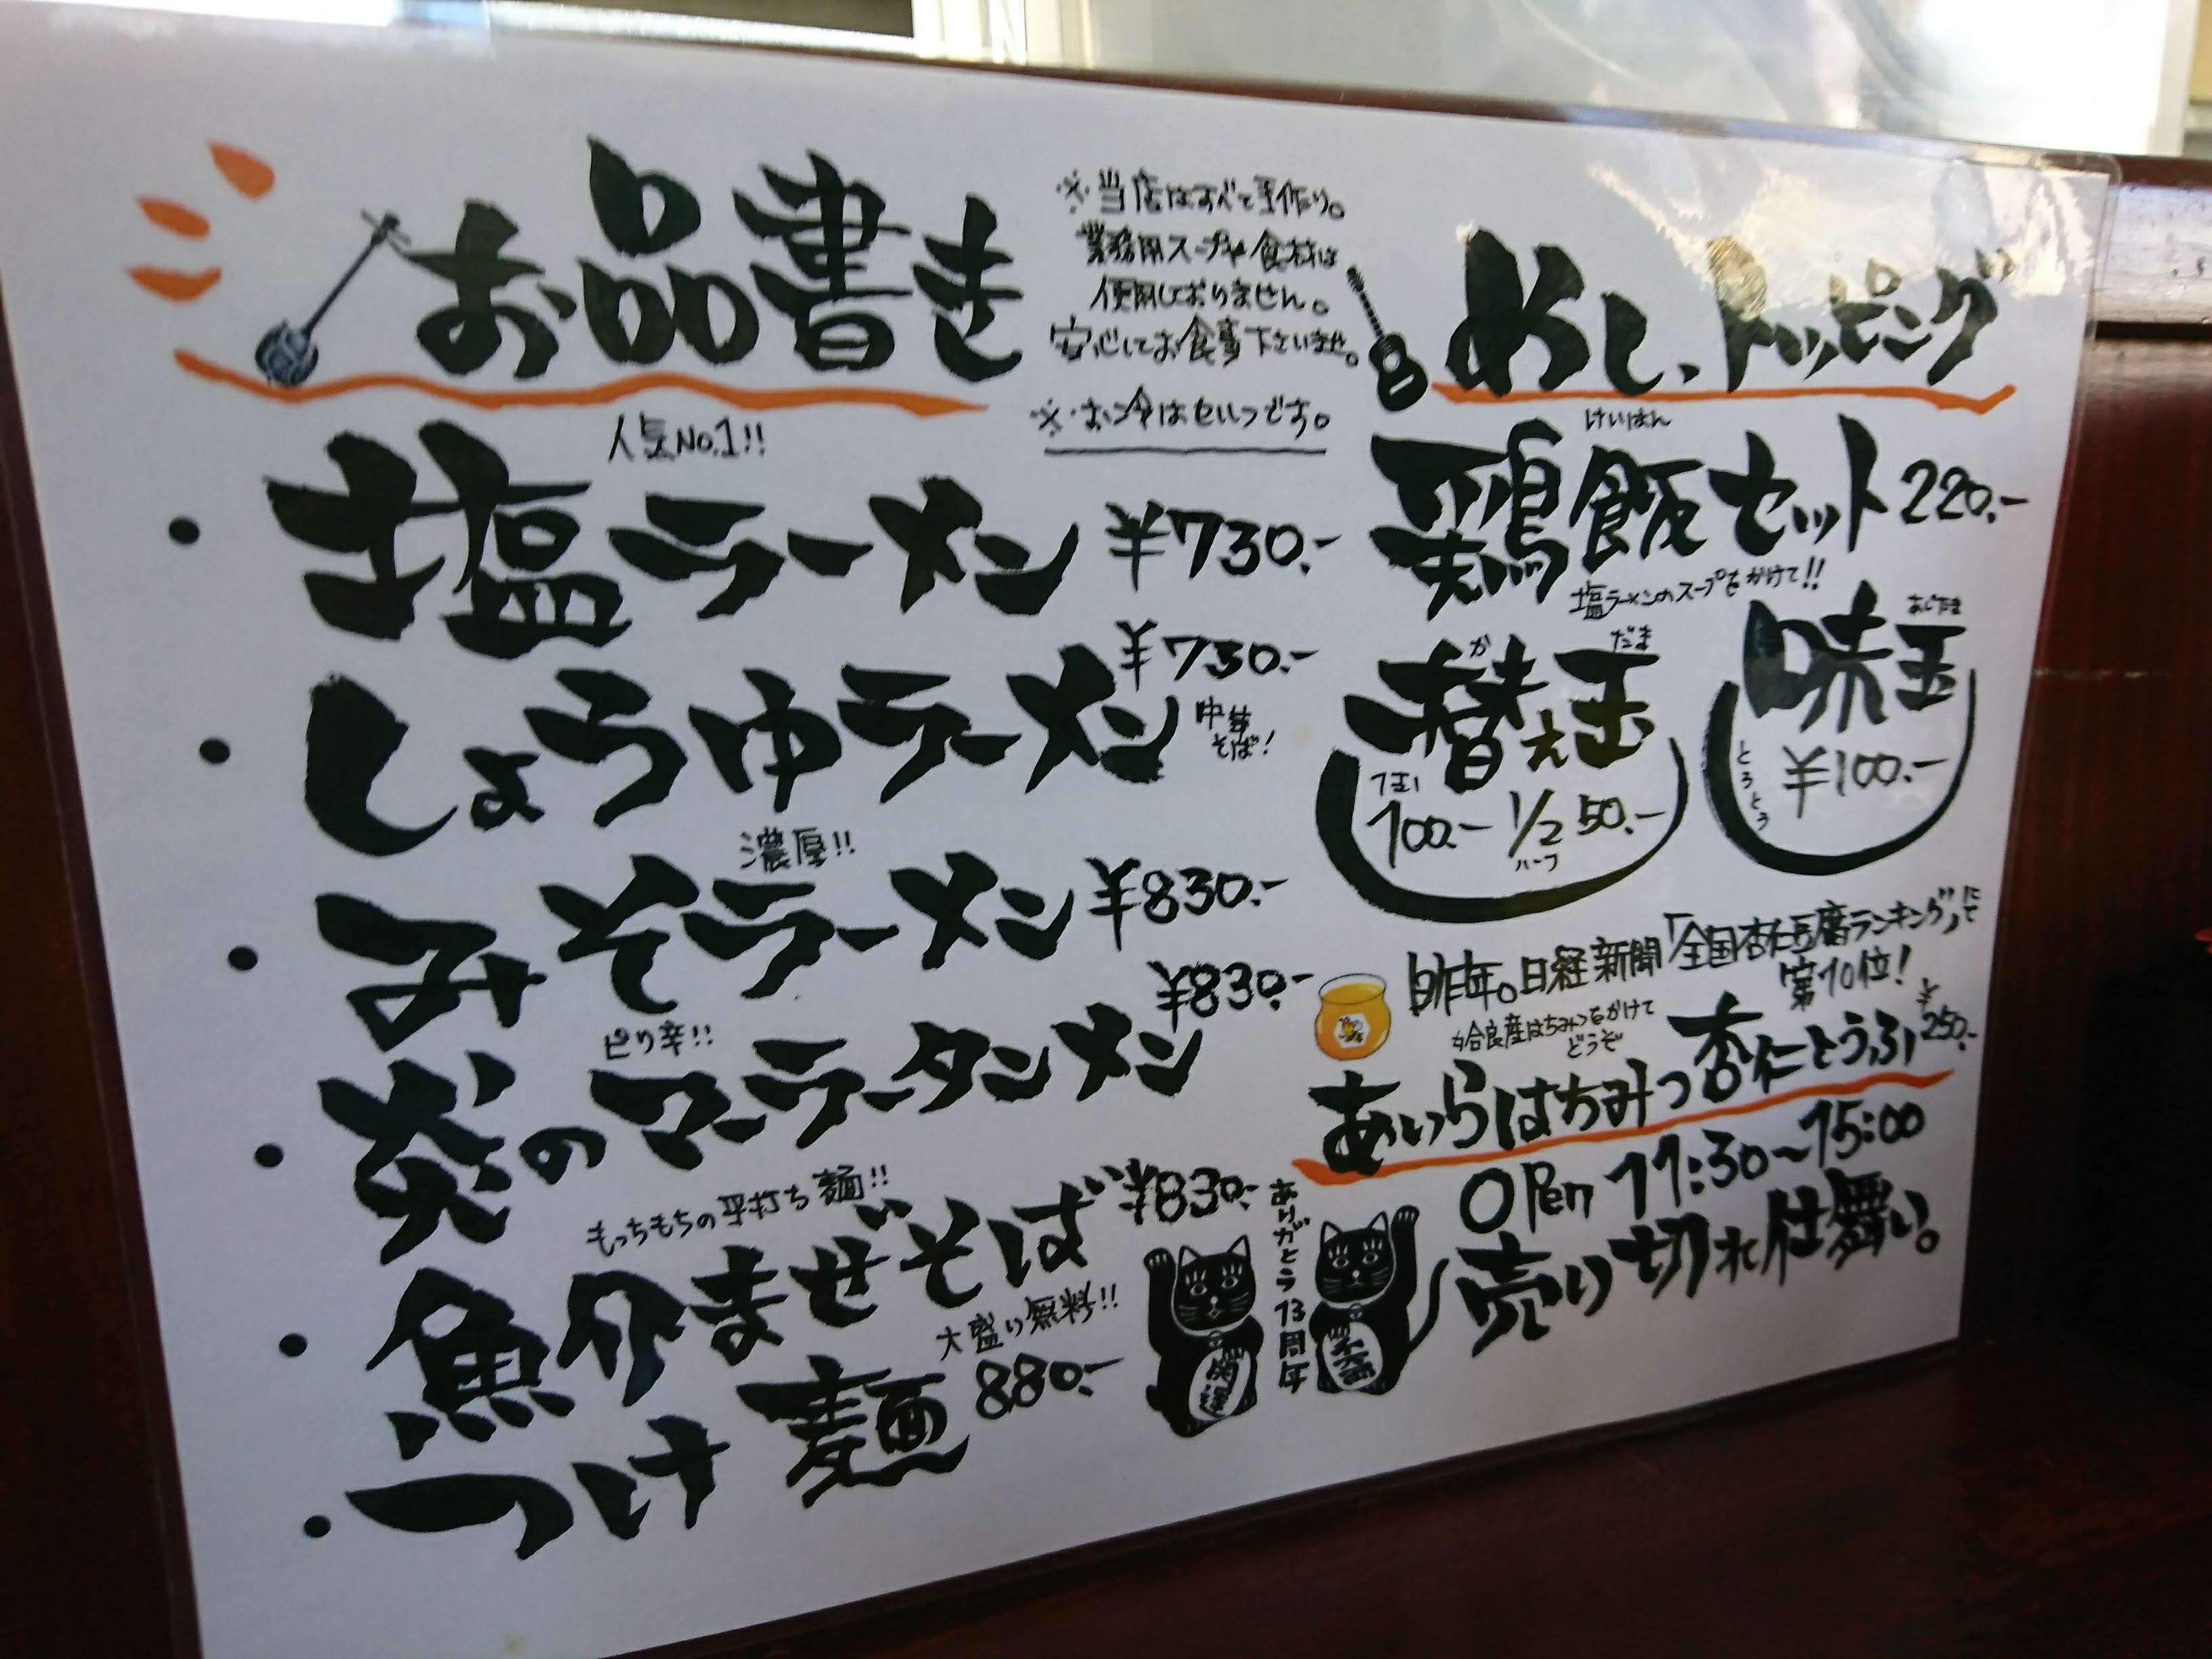 お品書き
※当店はすべて手作り。
業務用スープや食材は
使用しておりません。
安心してお食事下さいませ。
※お冷はセルフです。
人気No.1!!
・塩ラーメン ¥730.-
・しょうゆラーメン ¥730.-
中華そば!
濃厚!!
・みそラーメン ¥830.-
ピリ辛!!
・炎のマーラータンメン ¥830.-
もっちもちの平打ち麺!!
・魚介まぜそば ¥830.-
大盛り無料!!
・つけ麺 880.-
めし、トッピング
けいはん
鶏飯セット 220.-
塩ラーメンのスープをかけて!!
か だま
替え玉
100.- 1/2 50.-
ハーフ
あじたま
味玉
とろとろ
¥100.-
昨年。日経新聞「全国杏仁豆腐ランキング」にて
第10位!
姶良産はちみつをかけて
どうぞ
あいらはちみつ杏仁とうふ ¥250.-
OPen 11:30~15:00
売り切れ仕舞い。
ありがとう13周年
開運